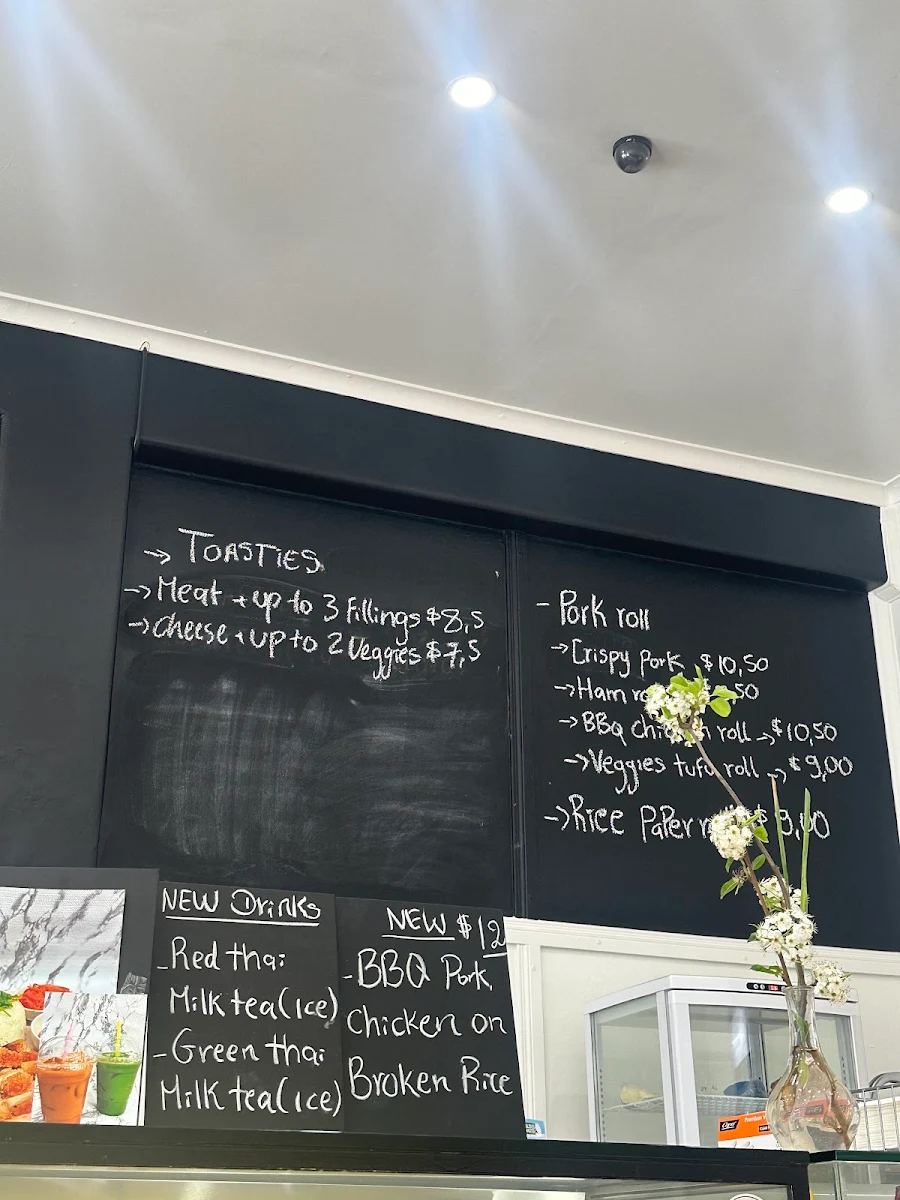 -> TOASTIES
-> Meat + up to 3 Fillings $8,5
-> cheese + up to 2 Veggies $7,5
- Pork roll
-> Crispy pork $10,50
-> Ham 50
-> BBQ roll -> $10,50
-> Veggies tufu roll -> $9,00
-> Rice PaPer $9,00
NEW Drinks
- Red thai
Milk tea (ice)
- Green thai
Milk tea (ice)
NEW $12
- BBQ Pork
chicken on
Broken Rice